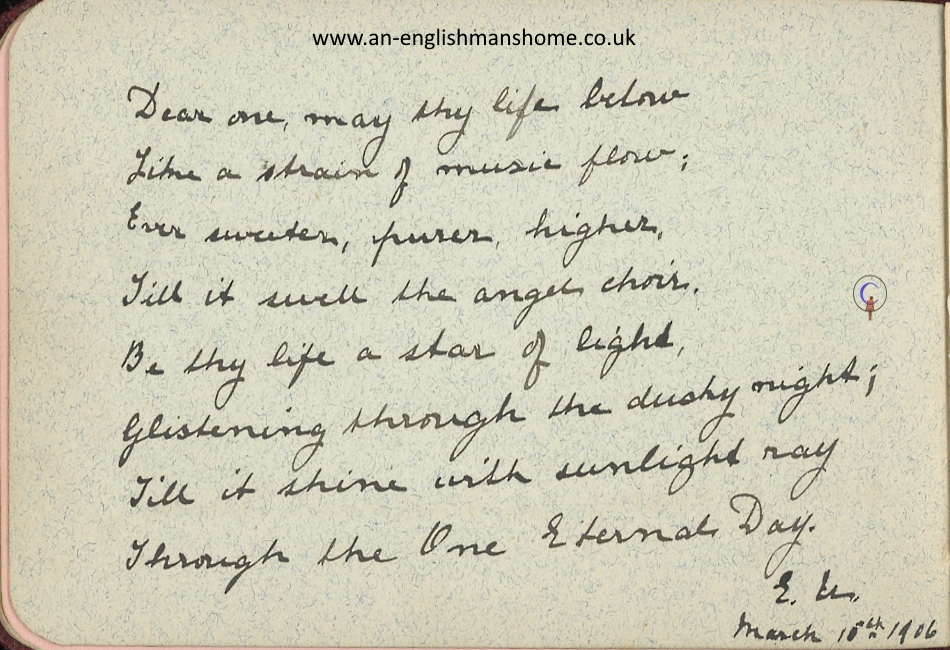 www.an-englishmanshome.co.uk
Dear one, may thy life below
Like a strain of music flow;
Ever sweeter, purer, higher,
Till it swell the angel choir.
Be thy life a star of light,
Glistening through the dusky night;
Till it shine with sunlight ray
Through the One Eternal Day.
E.
March 10th 1906